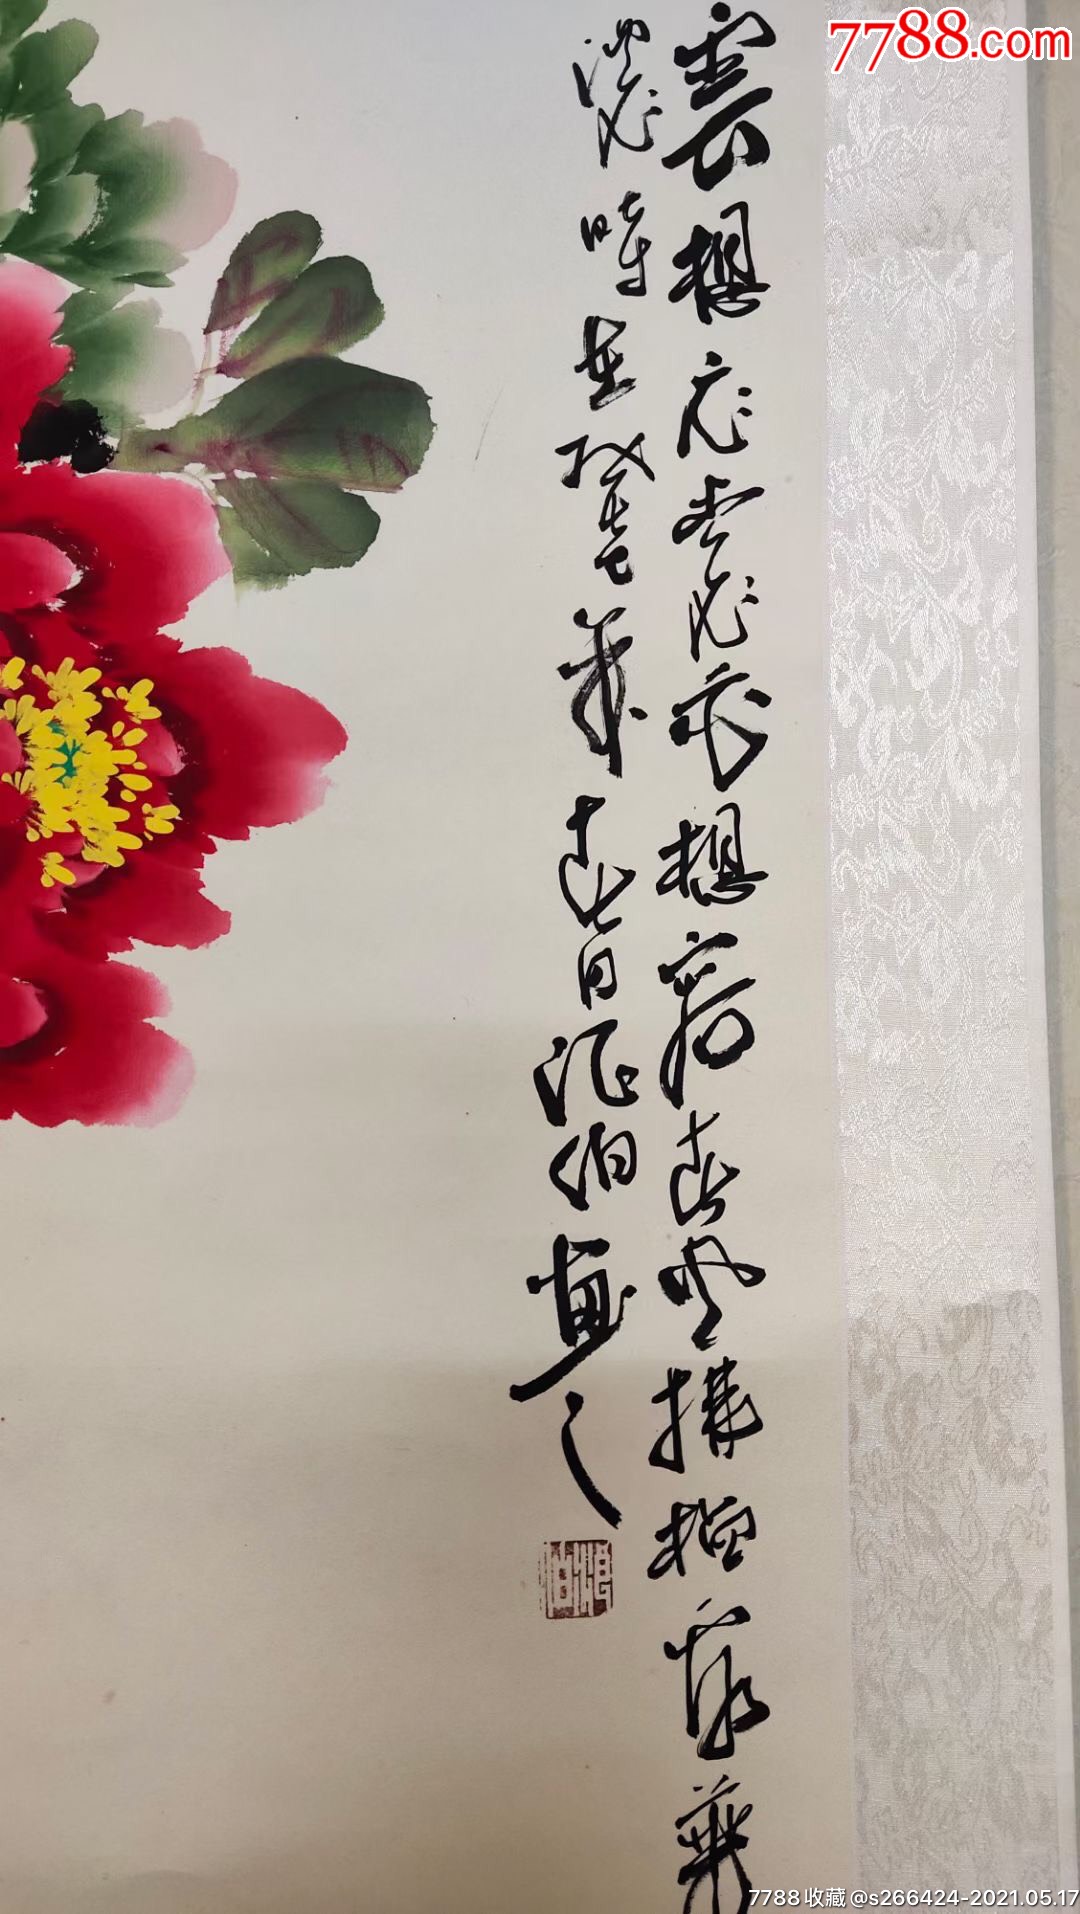 7788.com
雲想衣裳花想容春風拂檻露華
濃時在癸年春日伯畫之
7788收藏@s266424-2021.05.17